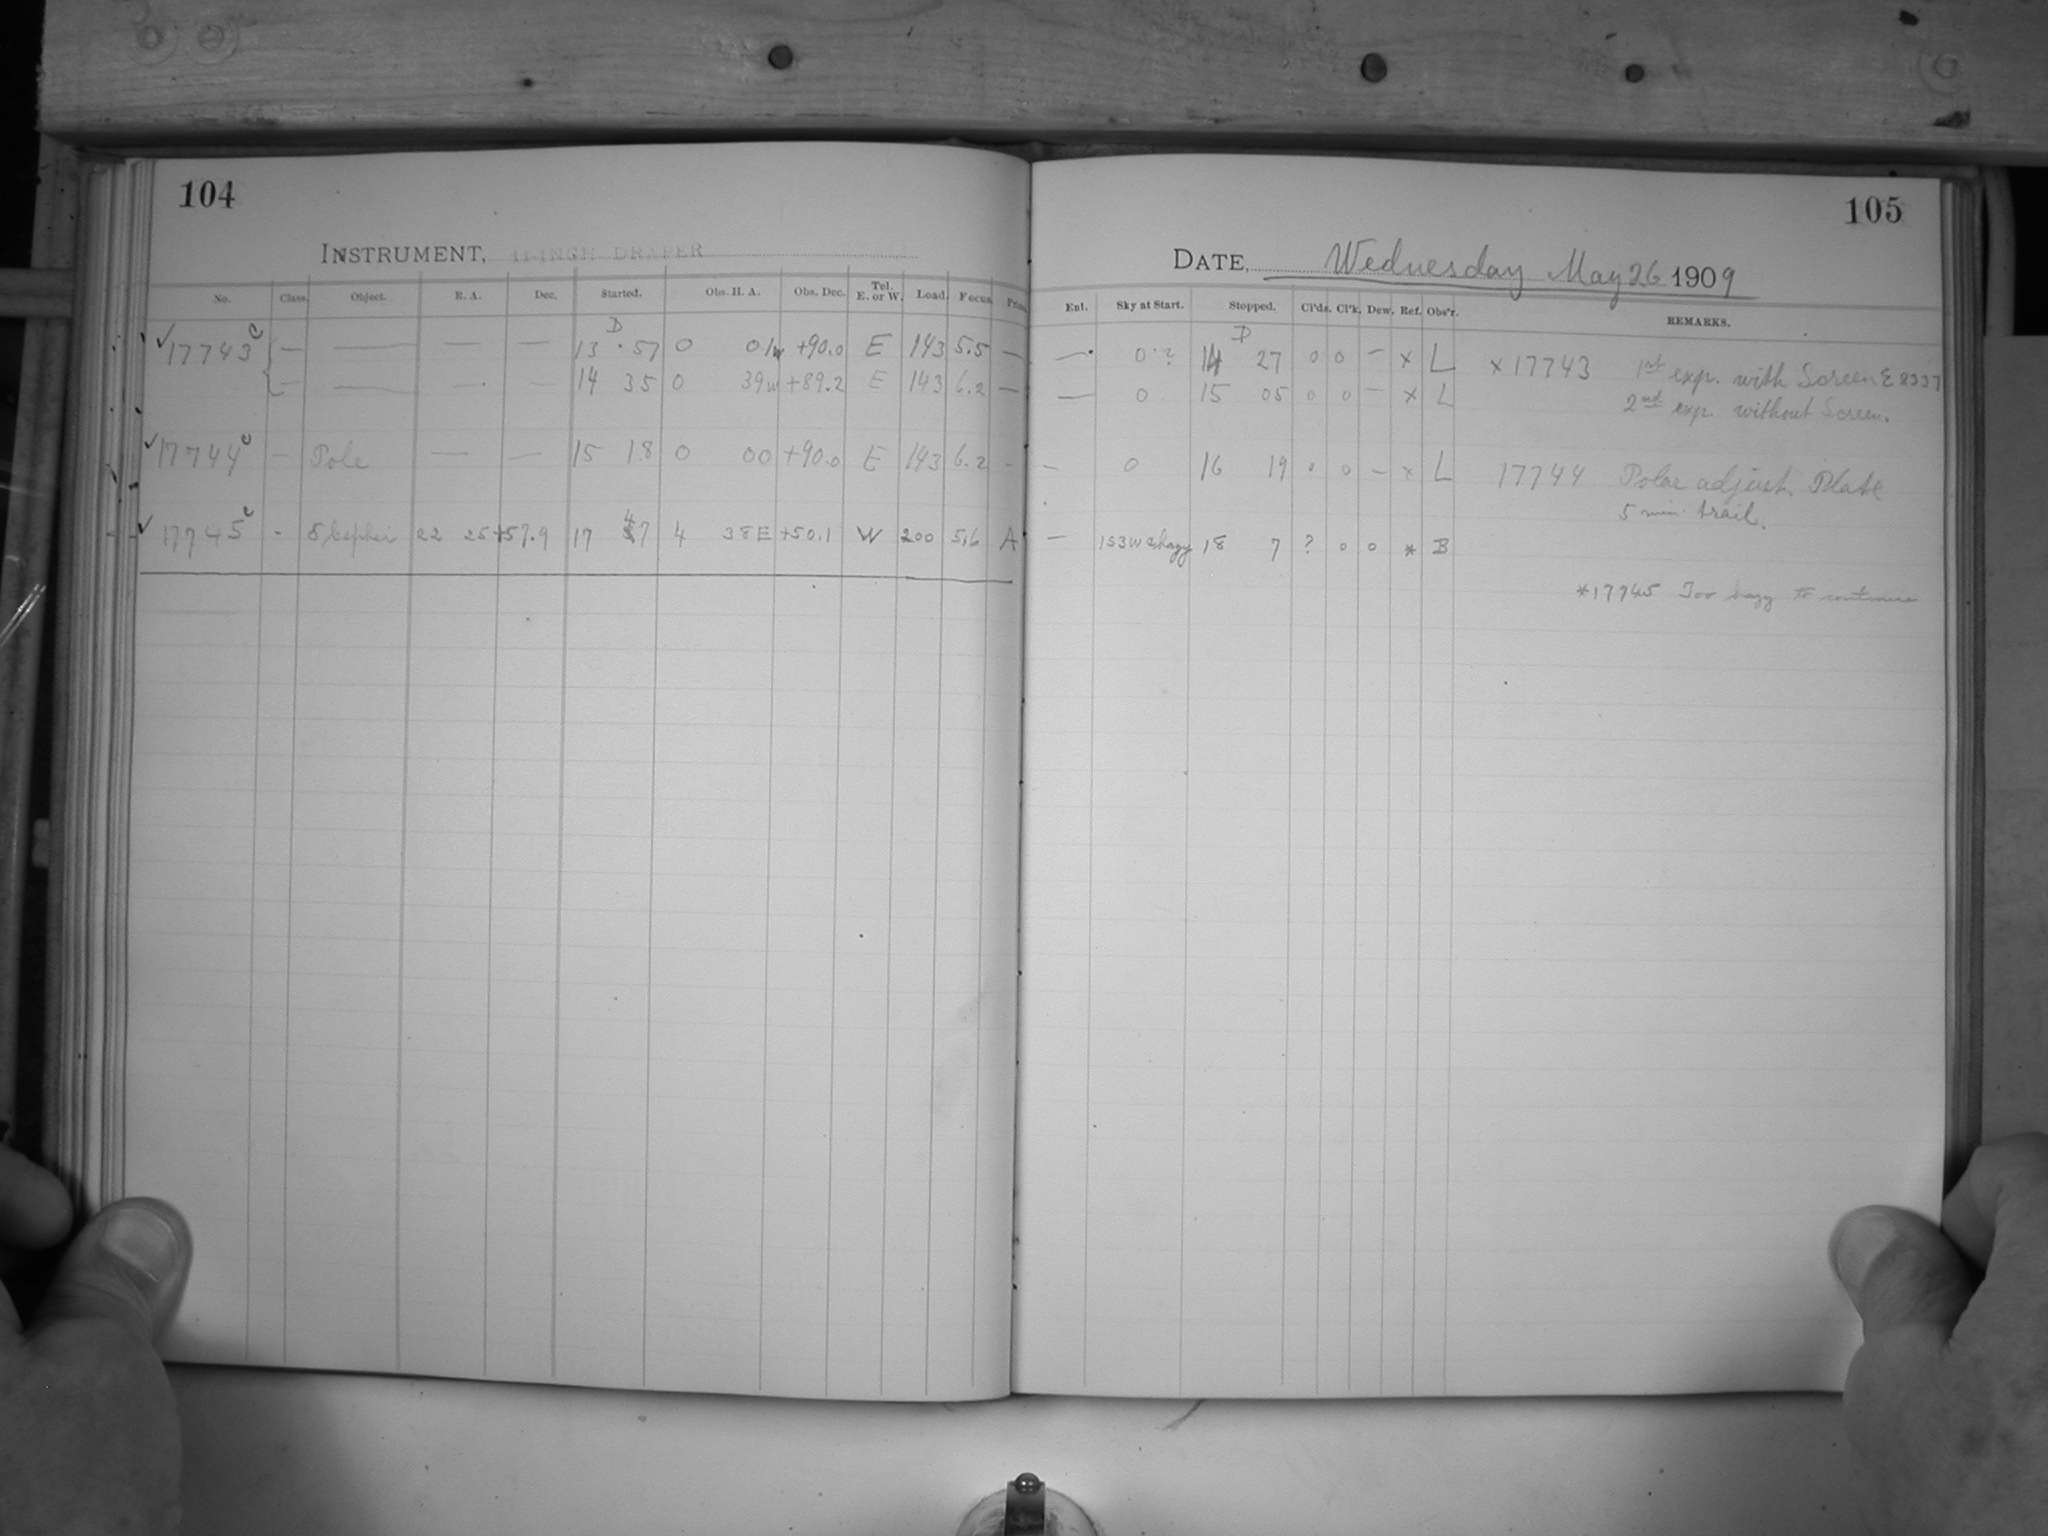 104
INSTRUMENT, 11 INCH DRAPER
No. Class. Object. R. A. Dec. Started. Obs. H. A. Obs. Dec. Tel. E. or W. Load. Focus. Prism
D
17743 c { — — — — 13 57 0 01w +90.0 E 143 5.5 —
— — — — 14 35 0 39w +89.2 E 143 6.2 —
17744 c — Pole — — 15 18 0 00 +90.0 E 143 6.2 -
17745 c - δ Cephei 22 25 +57.9 17 47 4 38E +50.1 W 200 5.6 A
105
DATE, Wednesday May 26 1909
Ent. Sky at Start. Stopped. Cl'ds. Cl'k. Dew. Ref. Obs'r. REMARKS.
D
— 0 ? 14 27 0 0 — x L x 17743 1st exp. with Screen
— 0 15 05 0 0 — x L 2nd exp. without Screen.
— 0 16 19 0 0 — x L 17744 Polar adjust. Plate
5 min. trail.
— hazy 18 7 ? 0 0 * B
*17745 Too hazy to continue